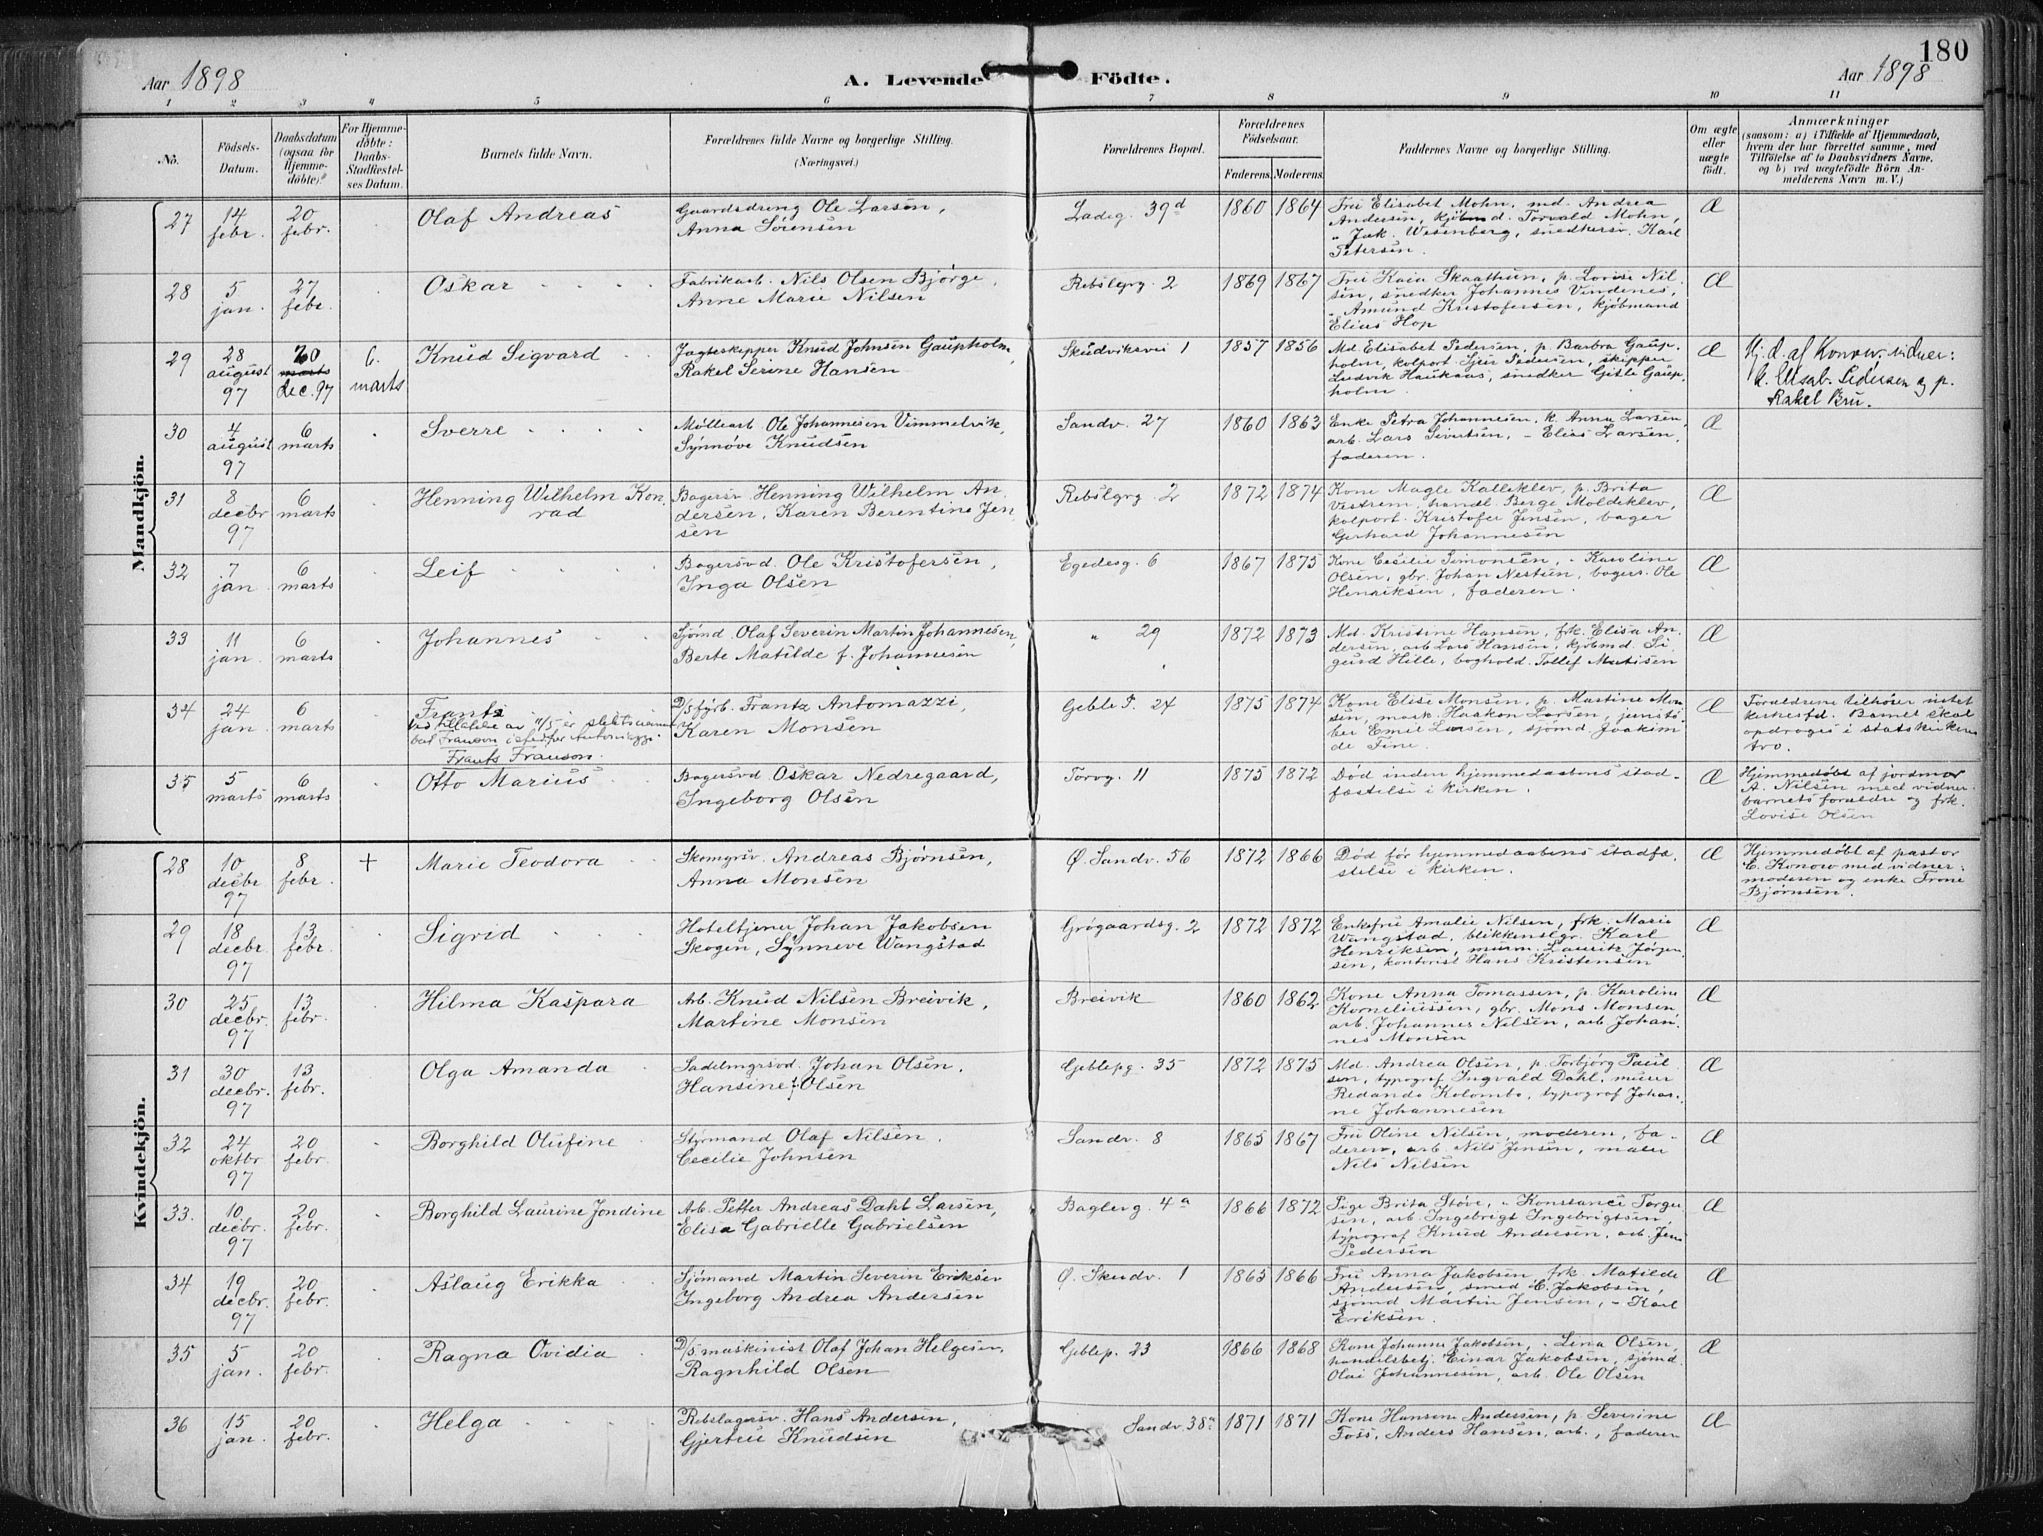 180
Aar 1898
A. Levende Födte.
Aar 1898
1 2 3 4 5 6 7 8 9 10 11
No.
Födsels-Datum.
Daabsdatum (ogsaa for Hjemme-döbte).
For Hjemme-döbte: Daabs-Stadfæstel-ses Datum.
Barnets fulde Navn.
Forældrenes fulde Navne og borgerlige Stilling. (Næringsvei.)
Forældrenes Bopæl.
Forældrenes Födselsaar.
Faderens. Moderens.
Faddernes Navne og borgerlige Stilling.
Om ægte eller uægte födt.
Anmærkninger
(saasom: a) i Tilfælde af Hjemmedaab,
hvem der har forrettet samme, med
Tilföielse af to Daabsvidners Navne,
og b) ved uægtefödte Börn An-
melderens Navn m. V.)
Mandkjön.
27 14 febr. 20 febr. Olaf Andreas
Gaardsdreng Ole Larsen,
Anna Sørensen
Ladeg. 39d 1860 1864
Fru Elisabet Mohn, md. Andrea
Andersen, kjøbmd. Torvald Mohn,
" Jak. Wesenberg, snedkersv. Karl
Petersen.
Æ
28 5 jan. 27 febr. Oskar
Fabrikarb. Nils Olsen Bjørge,
Anne Marie Nilsen
Rebslgrg. 2 1869 1867
Fru Kaia Skaathun, p. Lovise Nil-
sen, snedker Johannes Vindenes,
" Amund Kristofersen, kjøbmand
Elias Hop
Æ
29 28 august 97 20 marts dec. 97 6. marts Knud Sigvard
Jagteskipper Knud Johnsen Gaupholm,
Rakel Serine Hansen
Skudviksvei 1 1857 1856
Md. Elisabet Pedersen, p. Barbra Gaup-
holm, kolport. Sjur Pedersen, skipper
Ludvik Haukaas, snedker Gitle Gaup-
holm.
Æ
Hj. d. af Konow. vidner:
k. Elisab. Pedersen og p.
Rakel Bru.
30 4 august 97 6 marts Sverre
Møllearb. Ole Johannesen Vimmelvik,
Synnøve Knudsen
Sandv. 27 1860 1863
Enke Petra Johannesen, k. Anna Larsen,
arb. Lars Sivertsen, - Elias Larsen,
faderen.
Æ
31 8 decbr 97 6 marts Henning Wilhelm Kon-
rad
Bagersv. Henning Wilhelm An-
dersen, Karen Berentine Jen-
sen
Rebslgrg. 2 1872 1874
Kone Magle Kalleklev, p. Brita
Vestrem, handl. Berge Moldeklev,
kolport. Kristofer Jensen, bager
Gerhard Johannesen
Æ
32 7 jan. 6 marts Leif
Bagersvd. Ole Kristofersen,
Inga Olsen
Egedesg. 6 1867 1875
Kone Cesilie Simonsen, - Karoline
Olsen, gbr. Johan Nestun, bagers. Ole
Henriksen, faderen.
Æ
33 11 jan. 6 marts Johannes
Sjømd. Olaf Severin Martin Johannesen,
Berte Matilde f. Johannesen
" 29 1872 1873
Md. Kristine Hansen, frk. Elisa An-
dersen, arb. Lars Hansen, kjøbmd. Si-
gurd Hille, boghold. Tollef Matisen
Æ
34 24 jan. 6 marts Frants
Ved tillatelse av 11/5 er slektsnavnet
Franson istedfor Antomazzi.
Frants Franson.
D/s fyrb. Frantz Antomazzi,
Karen Monsen
Geble P. 24 1875 1874
Kone Elise Monsen, p. Martine Mon-
sen, mask. Haakon Larsen, jernstø-
ber Emil Larsen, sjømd. Joakim
de Fine.
Æ
Forældrene tilhører intet
kirkesfd. Barnet skal
opdroges i statskirkens
tro.
35 5 marts 6 marts Otto Marius
Bagersvd Oskar Nedregaard,
Ingeborg Olsen
Torvg. 11 1875 1872
Död inden hjemmedaabens stad-
fæstelse i kirken.
Æ
Hjemmedøbt af jordmor
A. Nilsen med vidner
barnets forældre og frk.
Lovise Olsen
Kvindekjön.
28 10 decbr 97 8 febr. + Marie Teodora
Skomgrsv. Andreas Bjørnsen,
Anna Monsen
Ø. Sandv. 56 1872 1866
Død før hjemmedaabens stadfæ-
stelse i kirken.
Æ
Hjemmedøbt af pastor
C. Konow med vidner:
moderen og enke Trone
Bjørnsen.
29 18 decbr. 97 13 febr. Sigrid
Hoteltjener Johan Jakobsen
Skogen, Synneve Wangstad
Grøgaardsg. 2 1872 1872
Enkefru Amalie Nilsen, frk. Marie
Wangstad, blikkenslgr. Karl
Henriksen, murm. Lauritz Jørgen-
sen, kontorist Hans Kristensen
Æ
30 25 decbr. 97 13 febr. Hilma Kaspara
Arb. Knud Nilsen Breivik,
Martine Monsen
Breivik 1860 1862
Kone Anna Tomassen, p. Karoline
Korneliussen, gbr. Mons Monsen,
arb. Johannes Nilsen, arb. Johan-
nes Monsen
Æ
31 30 decbr. 97 13 febr. Olga Amanda
Sadelmgrsvd. Johan Olsen,
Hansine f. Olsen
Geblepg. 35 1872 1875
Md. Andrea Olsen, p. Torbjørg Paul-
sen, typograf Ingvald Dahl, murer
Redando Kolombo, typograf Johan-
ne Johannesen
Æ
32 24 oktbr 97 20 febr. Borghild Olufine
Styrmand Olaf Nilsen,
Cecilie Johnsen
Sandv. 8 1865 1867
Fru Oline Nilsen, moderen, fa-
deren, arb. Nils Jensen, maler
Nils Nilsen
Æ
33. 10 decbr. 97 20 febr. Borghild Laurine Jondine
Arb. Petter Andreas Dahl Larsen,
Elisa Gabrielle Gabrielsen
Baglerg. 4a 1866 1872
Pige Brita Støve, - Konstance Torger-
sen, arb. Ingebrigt Ingebrigtsen,
typograf Knud Andersen, arb. Jens
Pedersen
Æ
34 19 decbr. 97 20 febr. Aslaug Erikka
Sjømand Martin Severin Eriksen
Ingeborg Andrea Andersen
Ø. Skudv. 1 1865 1866
Fru Anna Jakobsen, frk. Matilde
Andersen, smed E. Jakobsen,
sjømd Martin Jensen, - Karl
Eriksen.
Æ
35 5 jan. 20 febr. Ragna Ovidia
D/s maskinist Olaf Johan Helgesen,
Ragnhild Olsen
Geblep. 23 1866 1868
Kone Johanna Jakobsen, - Lina Olsen,
handelsbetj. Einar Jakobsen, sjømd.
Olai Johannesen, arb. Ole Olsen
Æ
36 15 jan. 20 febr. Helga
Rebslagersv. Hans Andersen,
Gjertru Knudsen
Sandv. 38a 1871 1871
Kone Hansine Andersen, p. Severine
Foss, Anders Hansen, arb., faderen
Æ